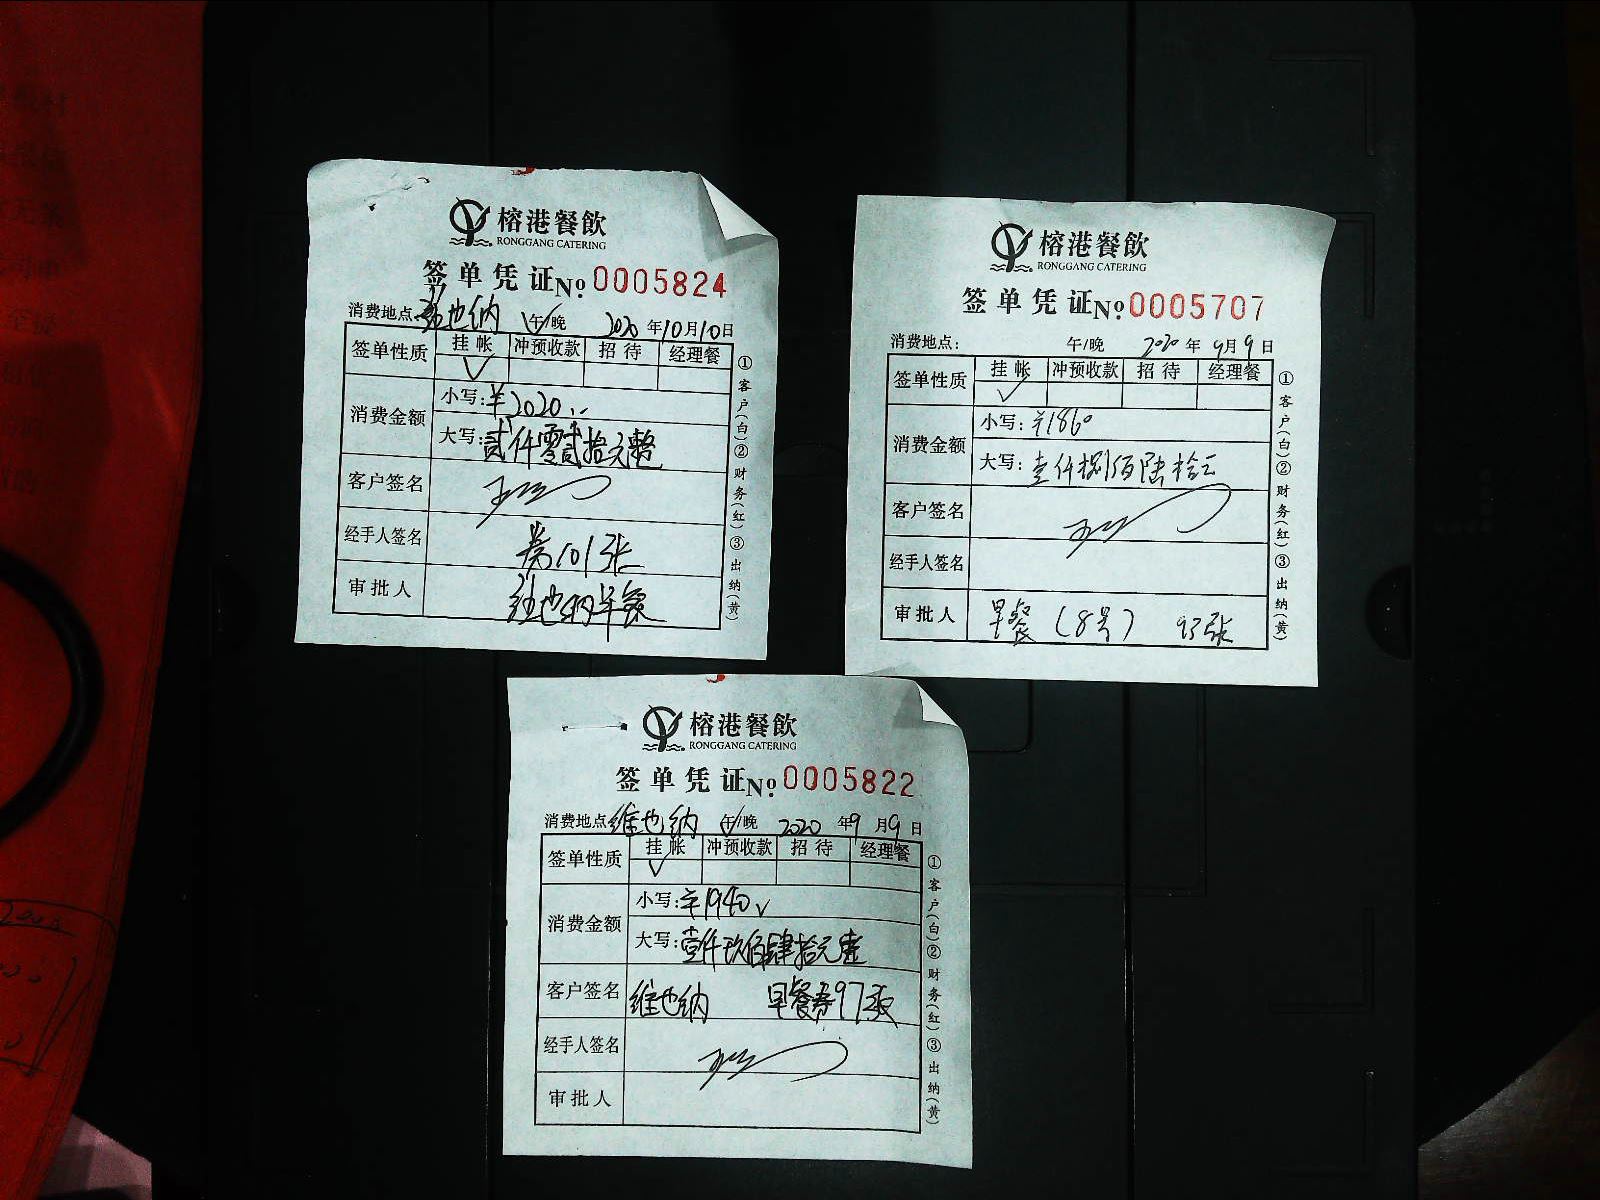 榕港餐飲
RONGGANG CATERING
签单凭证 No. 0005824
消费地点: 维也纳 午/晚 2020年10月10日
签单性质 挂帐 冲预收款 招待 经理餐
✓
消费金额 小写: ¥2020..
大写: 贰仟零贰拾元整
客户签名
经手人签名 券101张
审批人 维也纳早餐
①客户(白)②财务(红)③出纳(黄)
榕港餐飲
RONGGANG CATERING
签单凭证 No. 0005707
消费地点: 午/晚 2020年9月9日
签单性质 挂帐 冲预收款 招待 经理餐
✓
消费金额 小写: ¥1860
大写: 壹仟捌佰陆拾元
客户签名
经手人签名
审批人 早餐(8号) 93张
①客户(白)②财务(红)③出纳(黄)
榕港餐飲
RONGGANG CATERING
签单凭证 No. 0005822
消费地点 维也纳 午/晚 2020年9月9日
签单性质 挂帐 冲预收款 招待 经理餐
✓
消费金额 小写: ¥1940
大写: 壹仟玖佰肆拾元整
客户签名 维也纳 早餐券97张
经手人签名
审批人
①客户(白)②财务(红)③出纳(黄)